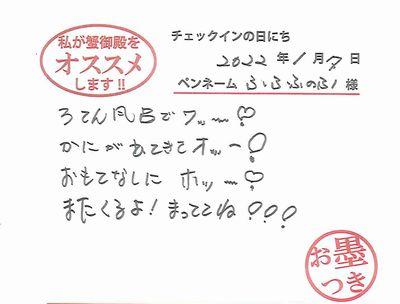 私が蟹御殿を
オススメ
します!!
チェックインの日にち
2022年1月7日
ペンネーム ふふふのふ 様
ろてん風呂でワッー♡
かにがでてきてオッー!
おもてなしに ホッー♡
またくるよ!まっててね!!!
お墨
つき